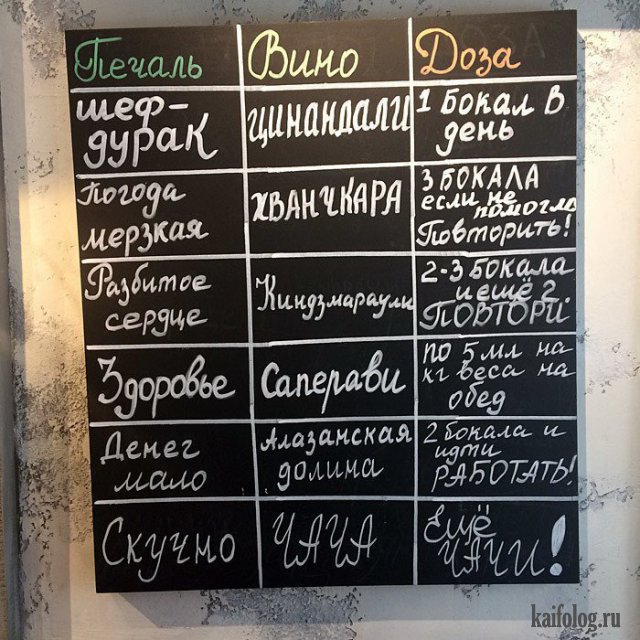 Печаль Вино Доза
шеф-
дурак
цинандали
1 бокал в
день
Погода
мерзкая
хванчкара
3 бокала
если не
помогло
Повторить!
Разбитое
сердце
Киндзмараули
2-3 бокала
и ещё 2.
ПОВТОРИ
Здоровье
Саперави
по 5 мл на
кг веса на
обед
Денег
мало
Алазанская
долина
2 бокала и
идти
РАБОТАТЬ!
Скучно
ЧАЧА
Ещё
ЧАЧИ!
kaifolog.ru